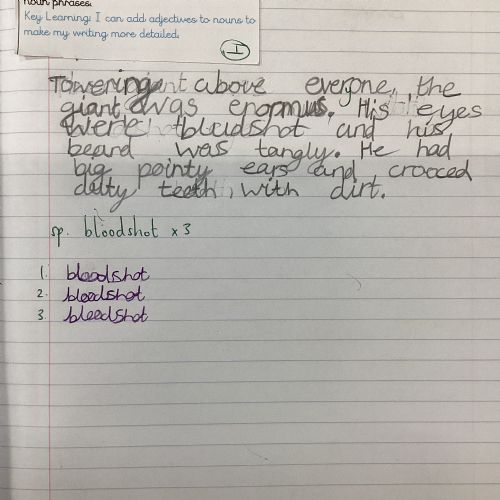 noun phrases.
Key Learning: I can add adjectives to nouns to
make my writing more detailed.
I
Towering above everyone, the
giant was enormus. His eyes
were bludshot and his
beard was tangly. He had
big pointy ears and crooced
teeth, with dirt.
sp. bloodshot x 3
1. bloodshot
2. bloodshot
3. bloodshot